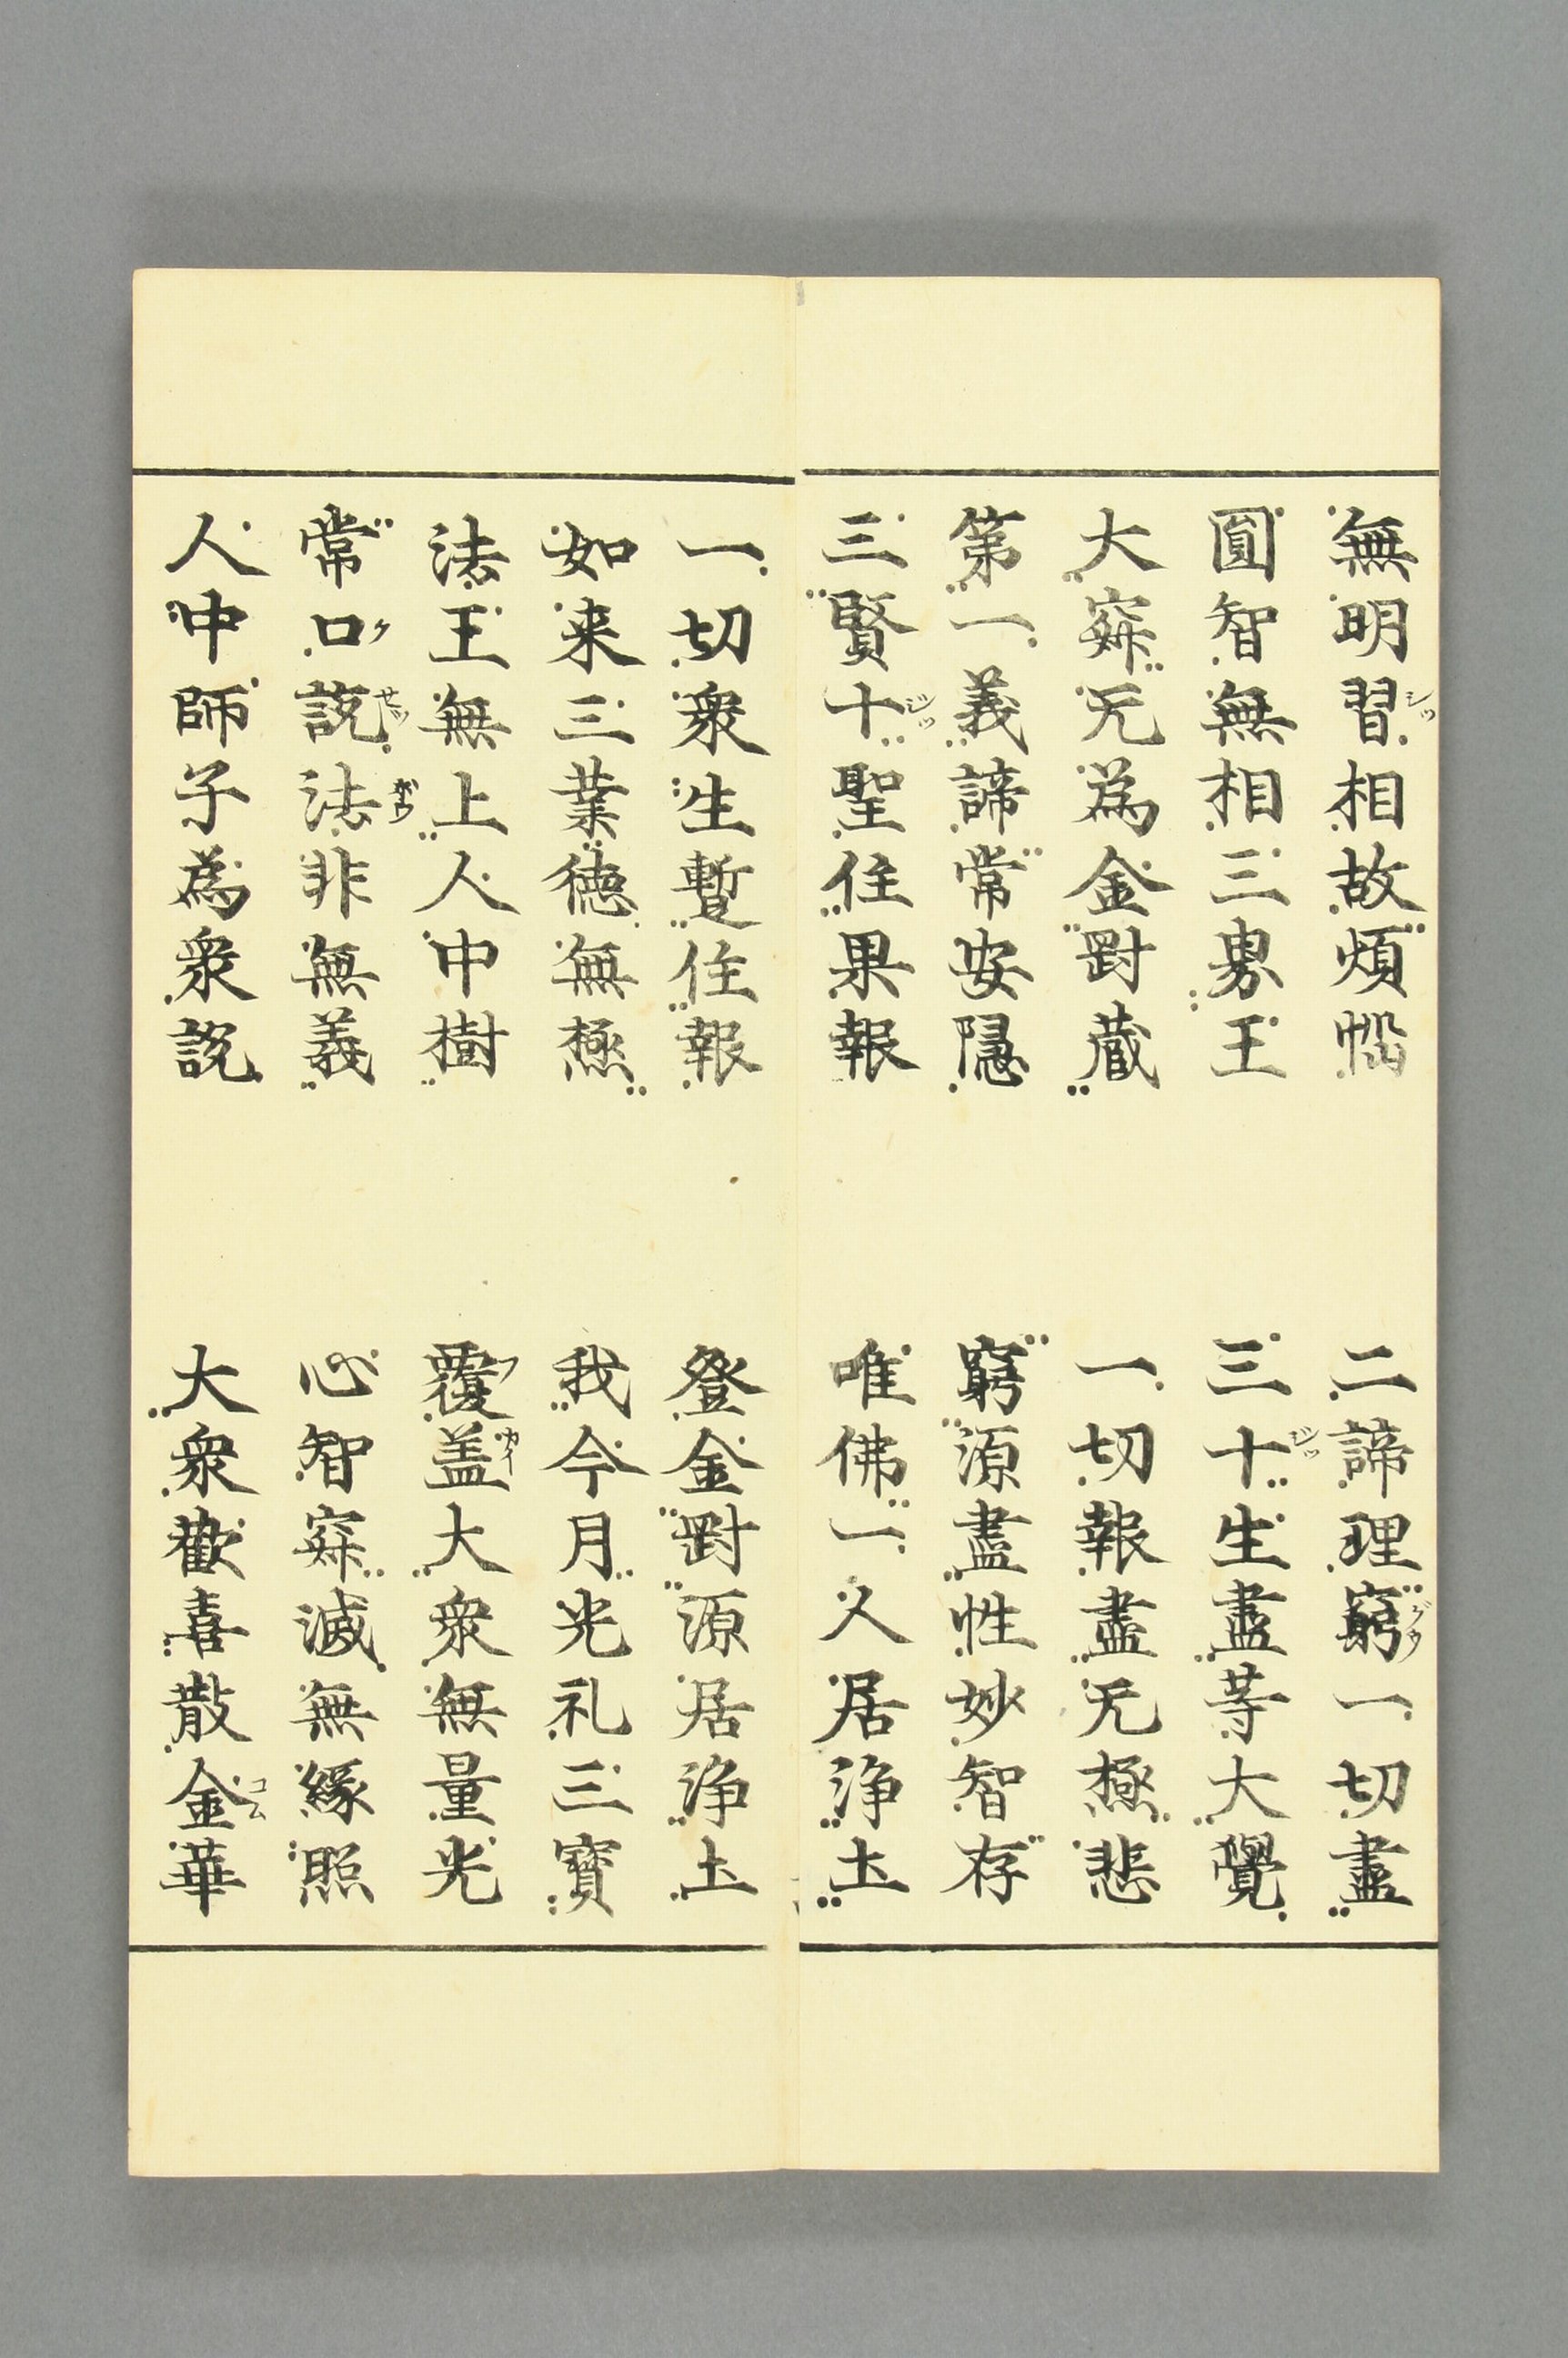 無明習相故煩惱　二諦理窮一切盡
圓智無相三界王　三十生盡等大覺
大寂无為金剛蔵　一切報盡无極悲
第一義諦常安隱　窮源盡性妙智存
三賢十聖住果報　唯佛一人居浄土
一切衆生暫住報　登金剛源居浄土
如来三業徳無極　我今月光礼三寳
法王無上人中樹　覆盖大衆無量光
常口說法非無義　心智寂滅無縁照
人中師子為衆說　大衆歡喜散金華